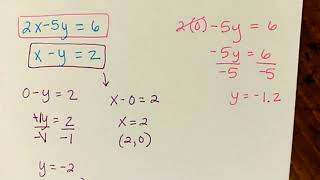 2x-5y=6
x-y=2
0-y=2
-1y/-1 = 2/-1
y=-2
x-0=2
x=2
(2,0)
2(0)-5y=6
-5y/-5 = 6/-5
y=-1.2